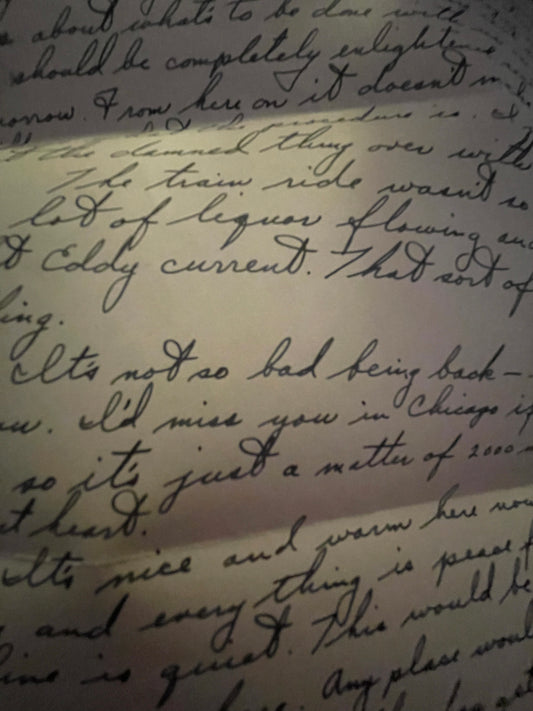 about what's to be done will
should be completely enlighten
orrow. From here on it doesn't m
the procedure is. I
the damned thing over with
The train ride wasn't so
lot of liquor flowing and
t Eddy current. That sort of
ling.
It's not so bad being back—
w. I'd miss you in Chicago if
so it's just a matter of 2000 m
t heart.
It's nice and warm here now
and every thing is peacef
line is quiet. This would be
Any place woul